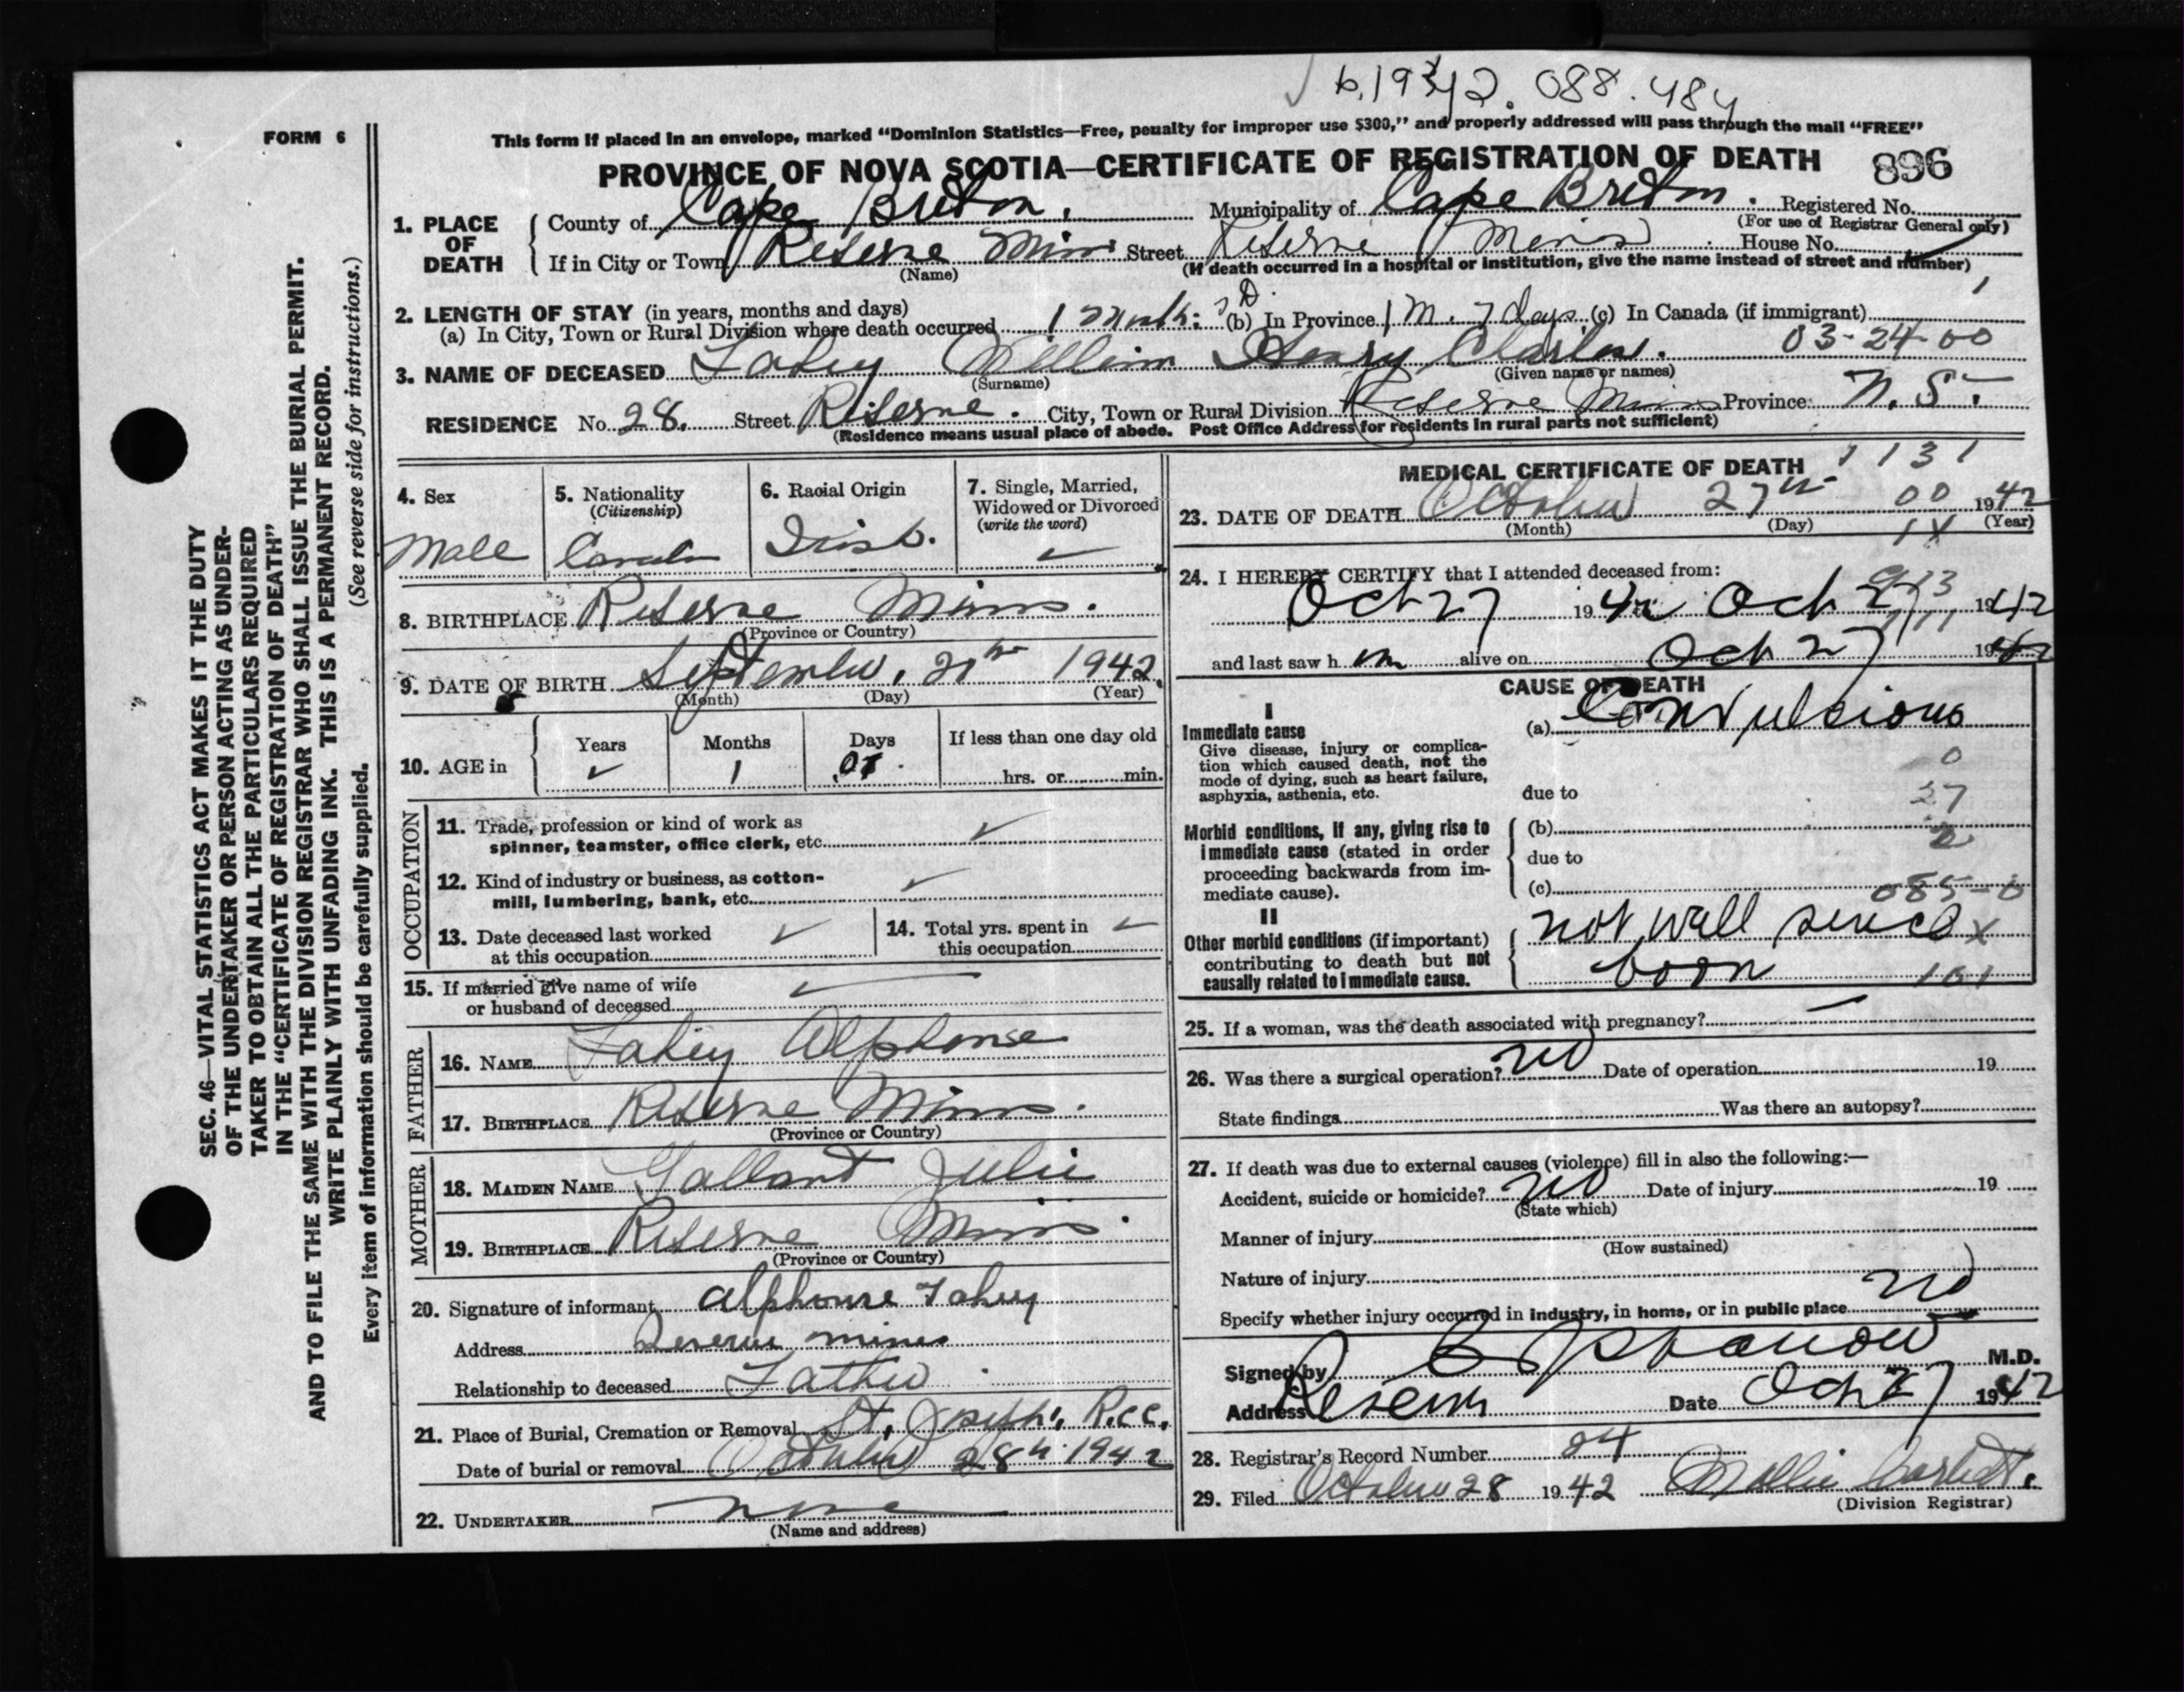 b.1942.088.484
FORM 6
This form if placed in an envelope, marked “Dominion Statistics—Free, penalty for improper use $300,” and properly addressed will pass through the mail “FREE”
PROVINCE OF NOVA SCOTIA—CERTIFICATE OF REGISTRATION OF DEATH 896
1. PLACE OF DEATH { County of Cape Breton. Municipality of Cape Breton. Registered No.
(For use of Registrar General only)
If in City or Town Reserve Mines Street Reserve Mines House No.
(Name) (If death occurred in a hospital or institution, give the name instead of street and number)
2. LENGTH OF STAY (in years, months and days)
(a) In City, Town or Rural Division where death occurred 1 Month 7 D (b) In Province 1 M. 7 days (c) In Canada (if immigrant)
03-24-00
3. NAME OF DECEASED Fahey William Henry Charles.
(Surname) (Given name or names)
RESIDENCE No. 28. Street Reserve. City, Town or Rural Division Reserve Mines Province N. S.
(Residence means usual place of abode. Post Office Address for residents in rural parts not sufficient)
4. Sex 5. Nationality (Citizenship) 6. Racial Origin 7. Single, Married, Widowed or Divorced (write the word)
Male Irish.
8. BIRTHPLACE Reserve Mines.
(Province or Country)
9. DATE OF BIRTH September, 1942.
(Month) (Day) (Year)
10. AGE in { Years Months Days If less than one day old
1 hrs. or min.
OCCUPATION
11. Trade, profession or kind of work as
spinner, teamster, office clerk, etc.
12. Kind of industry or business, as cotton-
mill, lumbering, bank, etc.
13. Date deceased last worked
at this occupation
14. Total yrs. spent in
this occupation
15. If married give name of wife
or husband of deceased
FATHER
16. NAME Fahey Alphonse
17. BIRTHPLACE Reserve Mines.
(Province or Country)
MOTHER
18. MAIDEN NAME Gallant Julie
19. BIRTHPLACE Reserve Mines.
(Province or Country)
20. Signature of informant Alphonse Fahey
Address Reserve Mines
Relationship to deceased Father
21. Place of Burial, Cremation or Removal St. Joseph's R.C.C.
Date of burial or removal October 28th 1942
22. UNDERTAKER none
(Name and address)
MEDICAL CERTIFICATE OF DEATH 1131
23. DATE OF DEATH October 27th 00 1942
(Month) (Day) (Year)
24. I HEREBY CERTIFY that I attended deceased from:
Oct 27 1942 Oct 27 1942
and last saw h im alive on Oct 27 1942
CAUSE OF DEATH
I
Immediate cause
Give disease, injury or complica-
tion which caused death, not the
mode of dying, such as heart failure,
asphyxia, asthenia, etc.
(a) Convulsions
0
due to
27
Morbid conditions, if any, giving rise to
immediate cause (stated in order
proceeding backwards from im-
mediate cause).
(b)
due to
(c) 085-0
II
Other morbid conditions (if important)
contributing to death but not
causally related to immediate cause.
not well since
born 161
25. If a woman, was the death associated with pregnancy?
26. Was there a surgical operation? no Date of operation 19
State findings Was there an autopsy?
27. If death was due to external causes (violence) fill in also the following:—
Accident, suicide or homicide? no Date of injury 19
(State which)
Manner of injury
(How sustained)
Nature of injury
Specify whether injury occurred in industry, in home, or in public place no
Signed by M.D.
Address Reserve Date Oct 27 1942
28. Registrar's Record Number 24
29. Filed October 28 1942 Mollie
(Division Registrar)
SEC. 46—VITAL STATISTICS ACT MAKES IT THE DUTY
OF THE UNDERTAKER OR PERSON ACTING AS UNDER-
TAKER TO OBTAIN ALL THE PARTICULARS REQUIRED
IN THE “CERTIFICATE OF REGISTRATION OF DEATH”
AND TO FILE THE SAME WITH THE DIVISION REGISTRAR WHO SHALL ISSUE THE BURIAL PERMIT.
WRITE PLAINLY WITH UNFADING INK. THIS IS A PERMANENT RECORD.
Every item of information should be carefully supplied. (See reverse side for instructions.)